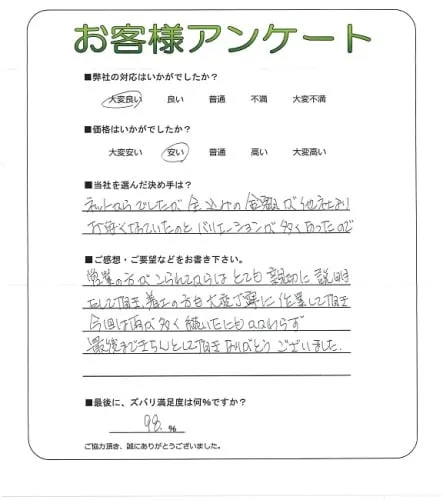 お客様アンケート
■弊社の対応はいかがでしたか?
大変良い 良い 普通 不満 大変不満
■価格はいかがでしたか?
大変安い 安い 普通 高い 大変高い
■当社を選んだ決め手は?
ネットからでしたが全込みの金額が他社より
お安くなっていたのとバリエーションが多くあったので
■ご感想・ご要望などをお書き下さい。
営業の方がこられてからはとても親切に説明
をして頂き、着工の方も大変丁寧に作業して頂き
今回は雨が多く続いたにもかかわらず
最後まできちんとして頂きありがとうございました。
■最後に、ズバリ満足度は何%ですか?
98 %
ご協力頂き、誠にありがとうございました。